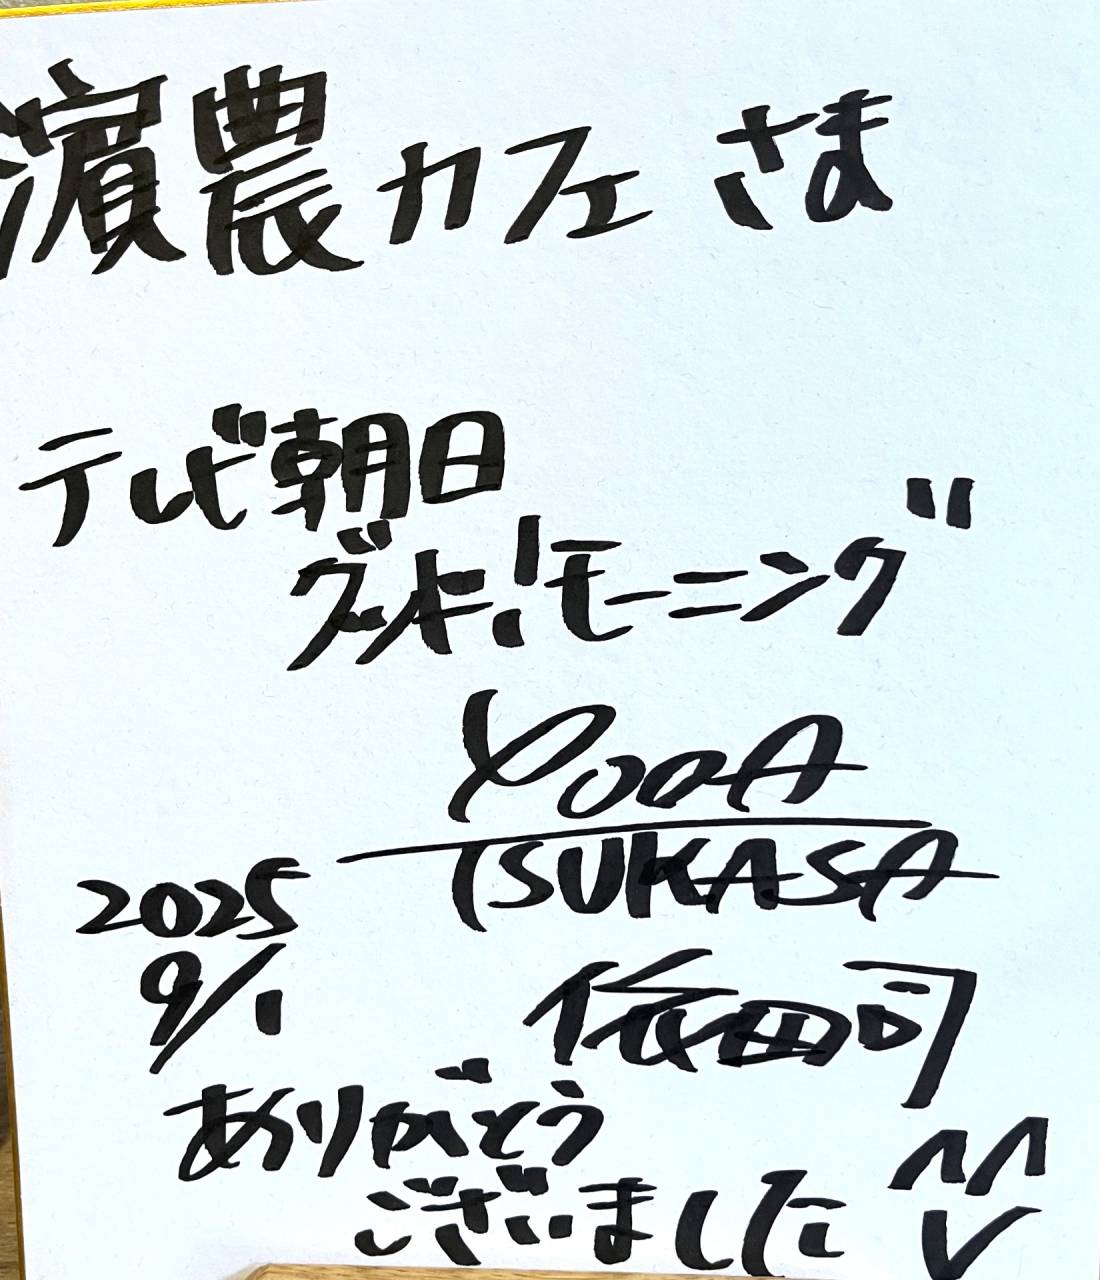 濱農カフェ さま
テレビ朝日
グッド!モーニング
YODA
TSUKASA
2025
9/1
依田司
ありがとう
ございました